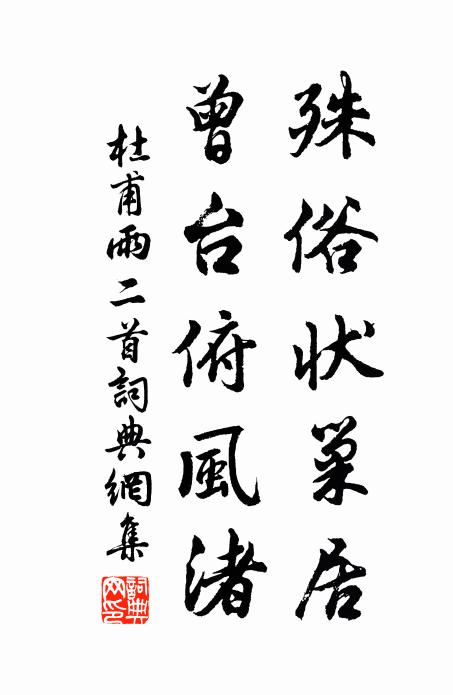 殊俗状巢居
曾台俯風渚
杜甫雨二首詞典網集
詞典网印